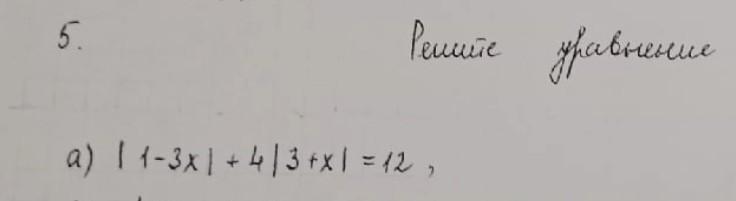 5. Решите уравнение
а) | 1-3x | + 4 | 3 + x | = 12 ,